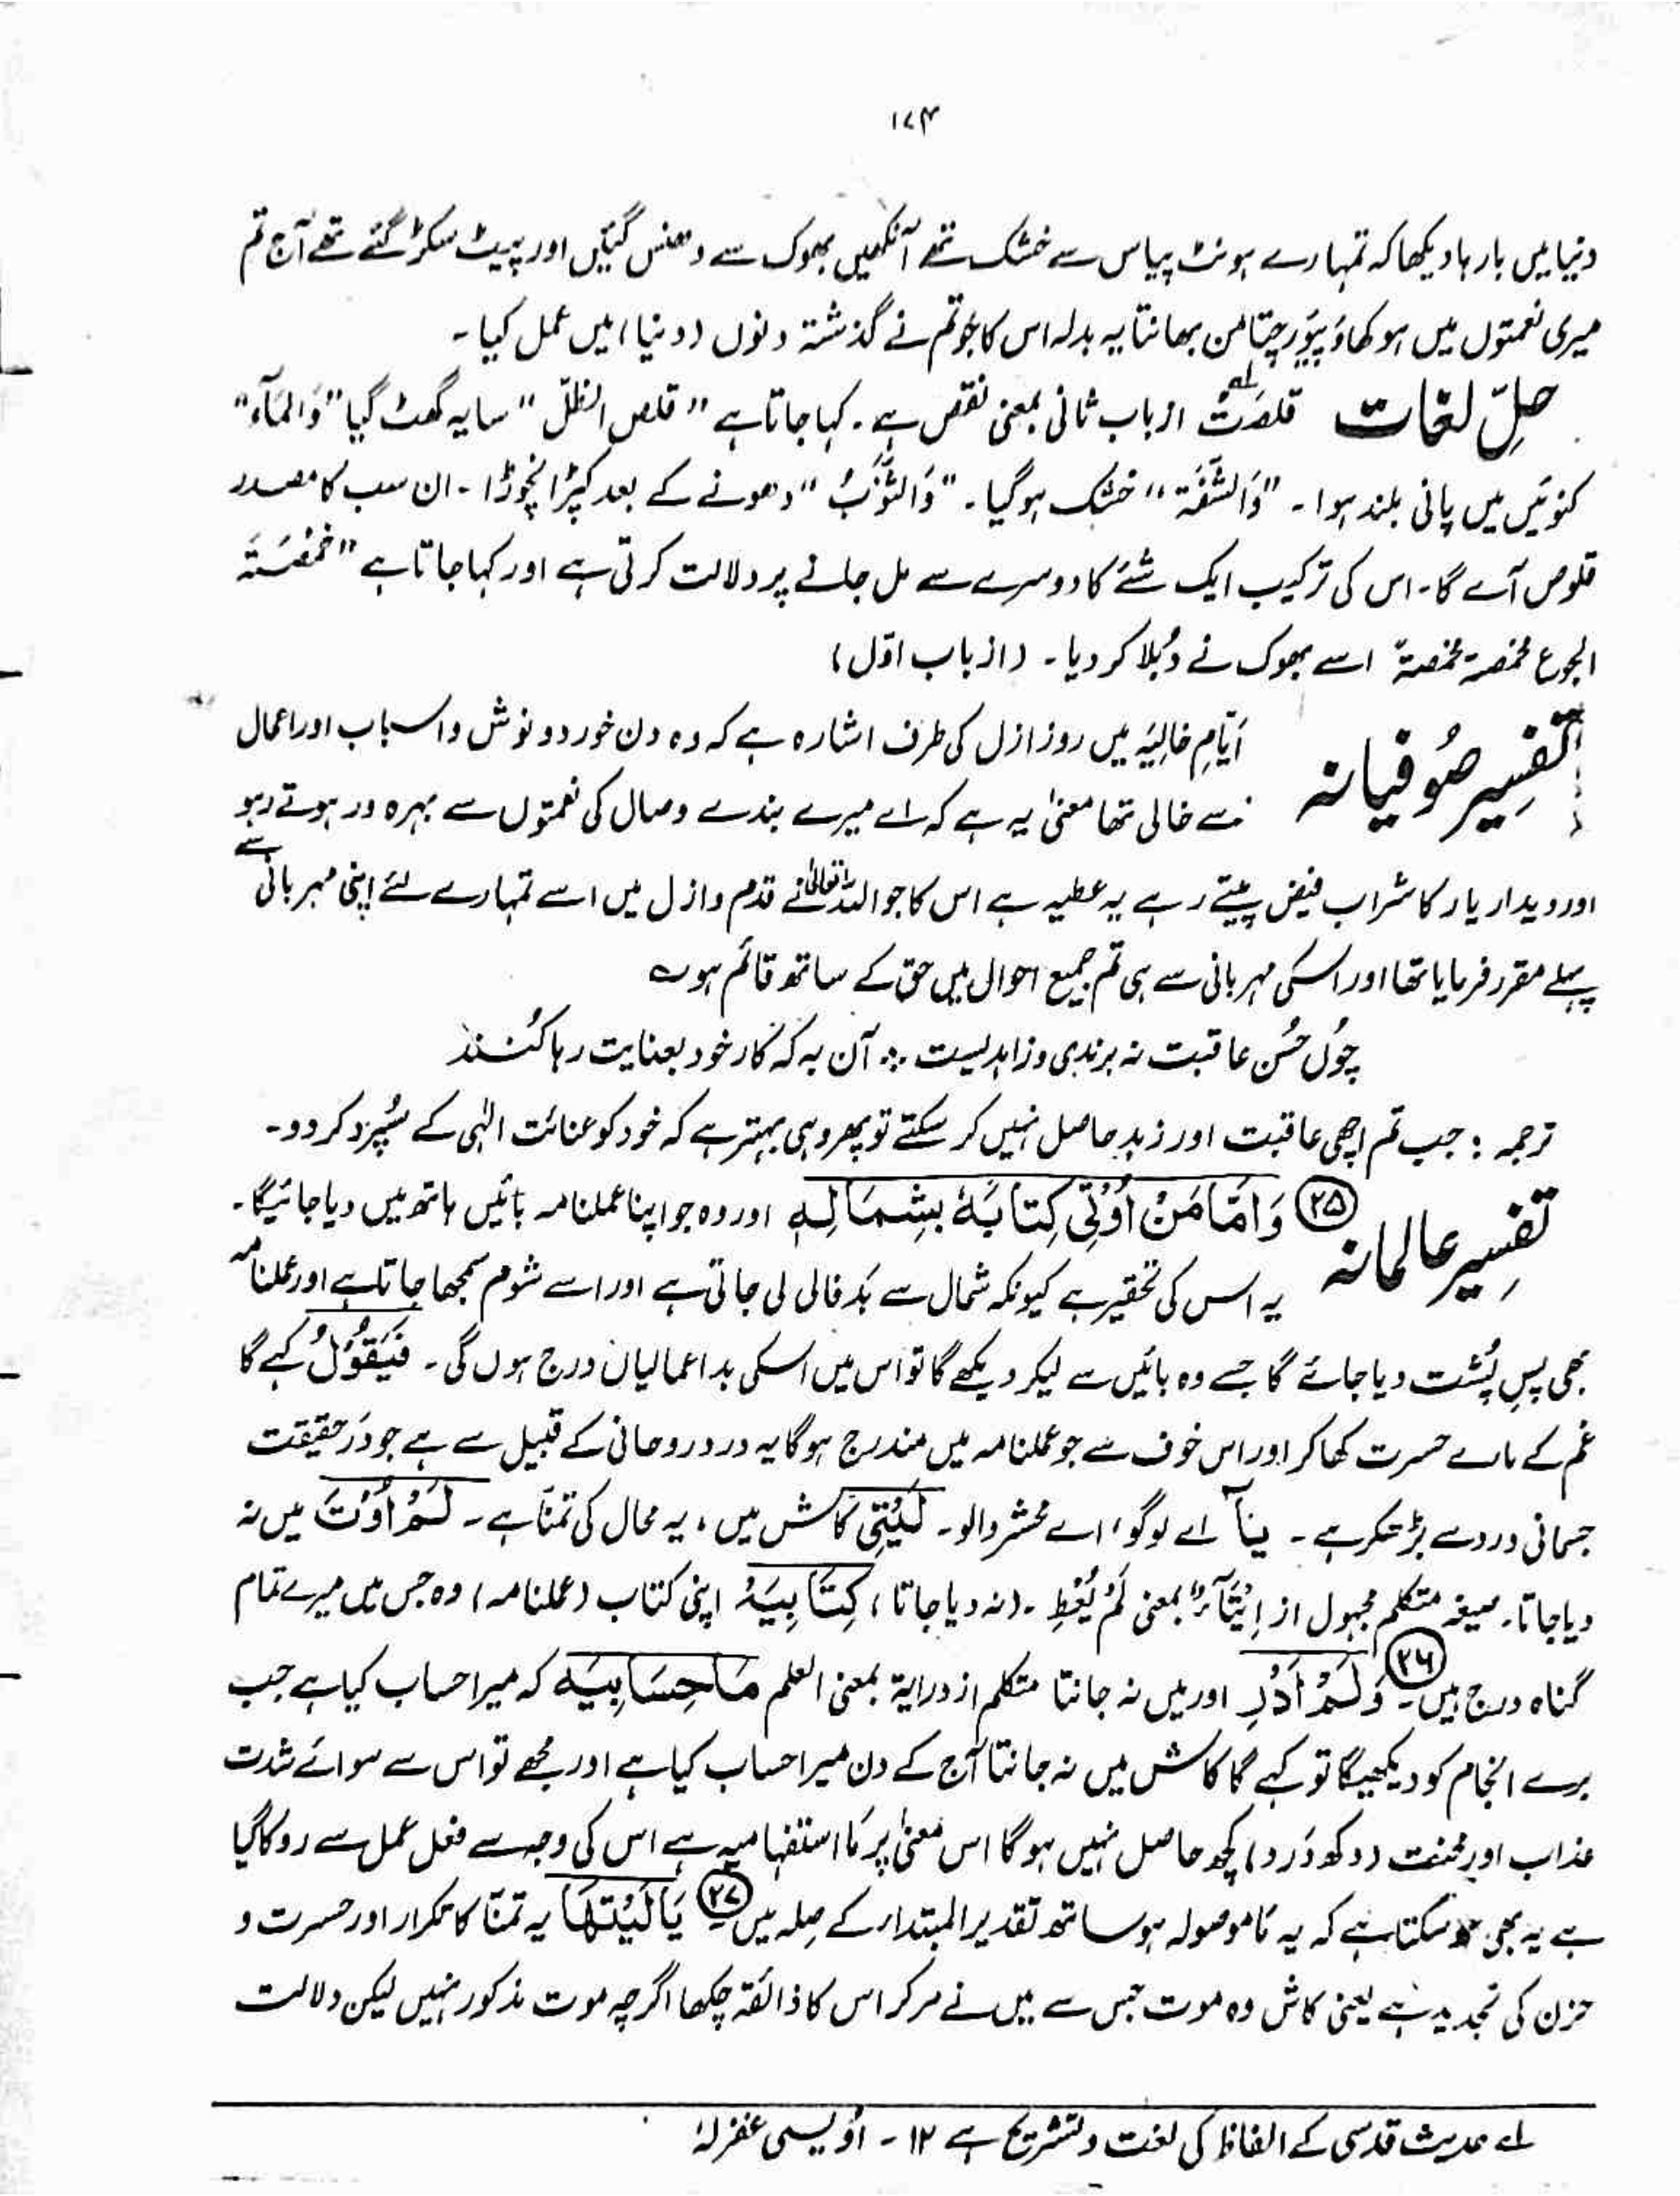 ۱۷۴
دنیا میں بارہا دیکھا کہ تمہارے ہونٹ پیاس سے خشک تھے آنکھیں بھوک سے دھنس گئیں اور پیٹ سکڑ گئے تھے آج تم
میری نعمتوں میں ہو کھاؤ پیؤ رچتا من بھانتا یہ بدلہ اس کا جو تم نے گذشتہ دنوں (دنیا) میں عمل کیا ۔
حلِّ لغات قلصَتْ لہ از باب ثانی بمعنی نقص ہے ۔ کہا جاتا ہے "قلص الظلّ" سایہ گھٹ گیا "وَالمَآء"
کنوئیں میں پانی بلند ہوا ۔ "وَالشَّفَۃ" خشک ہو گیا ۔ "وَالثَّوبُ" دھونے کے بعد کپڑا نچوڑا ۔ ان سب کا مصدر
قلوص آے گا ۔ اس کی ترکیب ایک شئے کا دوسرے سے مل جانے پر دلالت کرتی ہے اور کہا جاتا ہے "خمصَتَہ
الجوع مخمصۃ مخمصۃً اسے بھوک نے دُبلا کر دیا ۔ (از باب اوّل)
تفسیر صُوفیانہ اَیّامِ خالِیَہ میں روز ازل کی طرف اشارہ ہے کہ وہ دن خورد و نوش و اسباب اور اعمال
سے خالی تھا معنیٰ یہ ہے کہ اے میرے بندے وصال کی نعمتوں سے بہرہ ور ہوتے رہو
اور دیدار یار کا شراب فیض پیتے رہے یہ عطیہ ہے اس کا جو اللہ تعالیٰ نے قدم و ازل میں اسے تمہارے لئے اپنی مہربانی سے
پہلے مقرر فرمایا تھا اور اسکی مہربانی سے ہی تم جمیع احوال میں حق کے ساتھ قائم ہو ؎
چُوں حُسن عاقبت نہ برندی و زاہدیست ؞ آن بہ کہ کار خود بعنایت رہا کُنند
ترجمہ : جب تم اچھی عاقبت اور زہد حاصل نہیں کر سکتے تو پھر وہی بہتر ہے کہ خود کو عنائت الٰہی کے سُپرد کر دو ۔
تفسِیر عالمانہ (۲۵) وَاَمَّا مَنْ اُوْتِیَ کِتَابَہٗ بِشِمَالِہٖ اور وہ جو اپنا عملنامہ بائیں ہاتھ میں دیا جائیگا ۔
یہ اس کی تحقیر ہے کیونکہ شمال سے بَد فالی لی جاتی ہے اور اسے شوم سمجھا جاتا ہے اور عملنامہ
بھی پسِ پُشت دیا جائے گا جسے وہ بائیں سے لیکر دیکھے گا تو اس میں اسکی بد اعمالیاں درج ہوں گی ۔ فَیَقُوْلُ کہے گا
غم کے مارے حسرت کھا کر اور اس خوف سے جو عملنامہ میں مندرج ہوگا یہ درد روحانی کے قبیل سے ہے جو دَر حقیقت
جسمانی درد سے بڑھکر ہے ۔ یٰۤا اے لوگو ، اے محشر والو ۔ لَیْتَنِیْ کاش میں ، یہ محال کی تمنّا ہے ۔ لَمْ اُوْتَ میں نہ
دیا جاتا ۔ صیغہ متکلم مجہول از اِیْتَآءٌ بمعنی لَمْ یُعْطِ ۔ (نہ دیا جاتا) کِتَابِیَہْ اپنی کتاب (عملنامہ) وہ جس میں میرے تمام
گناہ درج ہیں ۔ (۲۶) وَلَمْ اَدْرِ اور میں نہ جانتا متکلم از درایۃ بمعنی العلم مَاحِسَابِیَہ کہ میرا حساب کیا ہے جب
برے انجام کو دیکھیگا تو کہے گا کاش میں نہ جانتا آج کے دن میرا حساب کیا ہے اور مجھے تو اس سے سوائے شدت
عذاب اور محنت (دکھ دَرد) کچھ حاصل نہیں ہو گا اس معنیٰ پر مَا استفہامیہ ہے اس کی وجہ سے فعل عمل سے روکا گیا
ہے یہ بھی ہو سکتا ہے کہ یہ مَا موصولہ ہو ساتھ تقدیر المبتدار کے صِلہ میں (۲۷) یَالَیْتَھَا یہ تمنّا کا تکرار اور حسرت و
حزن کی تجدید ہے یعنی کاش وہ موت جس سے میں نے مر کر اس کا ذائقہ چکھا اگرچہ موت مذکور نہیں لیکن دلالت
لے حدیث قدسی کے الفاظ کی لغت و تشریح ہے ۱۲ ۔ اُویسی غفرلہٗ